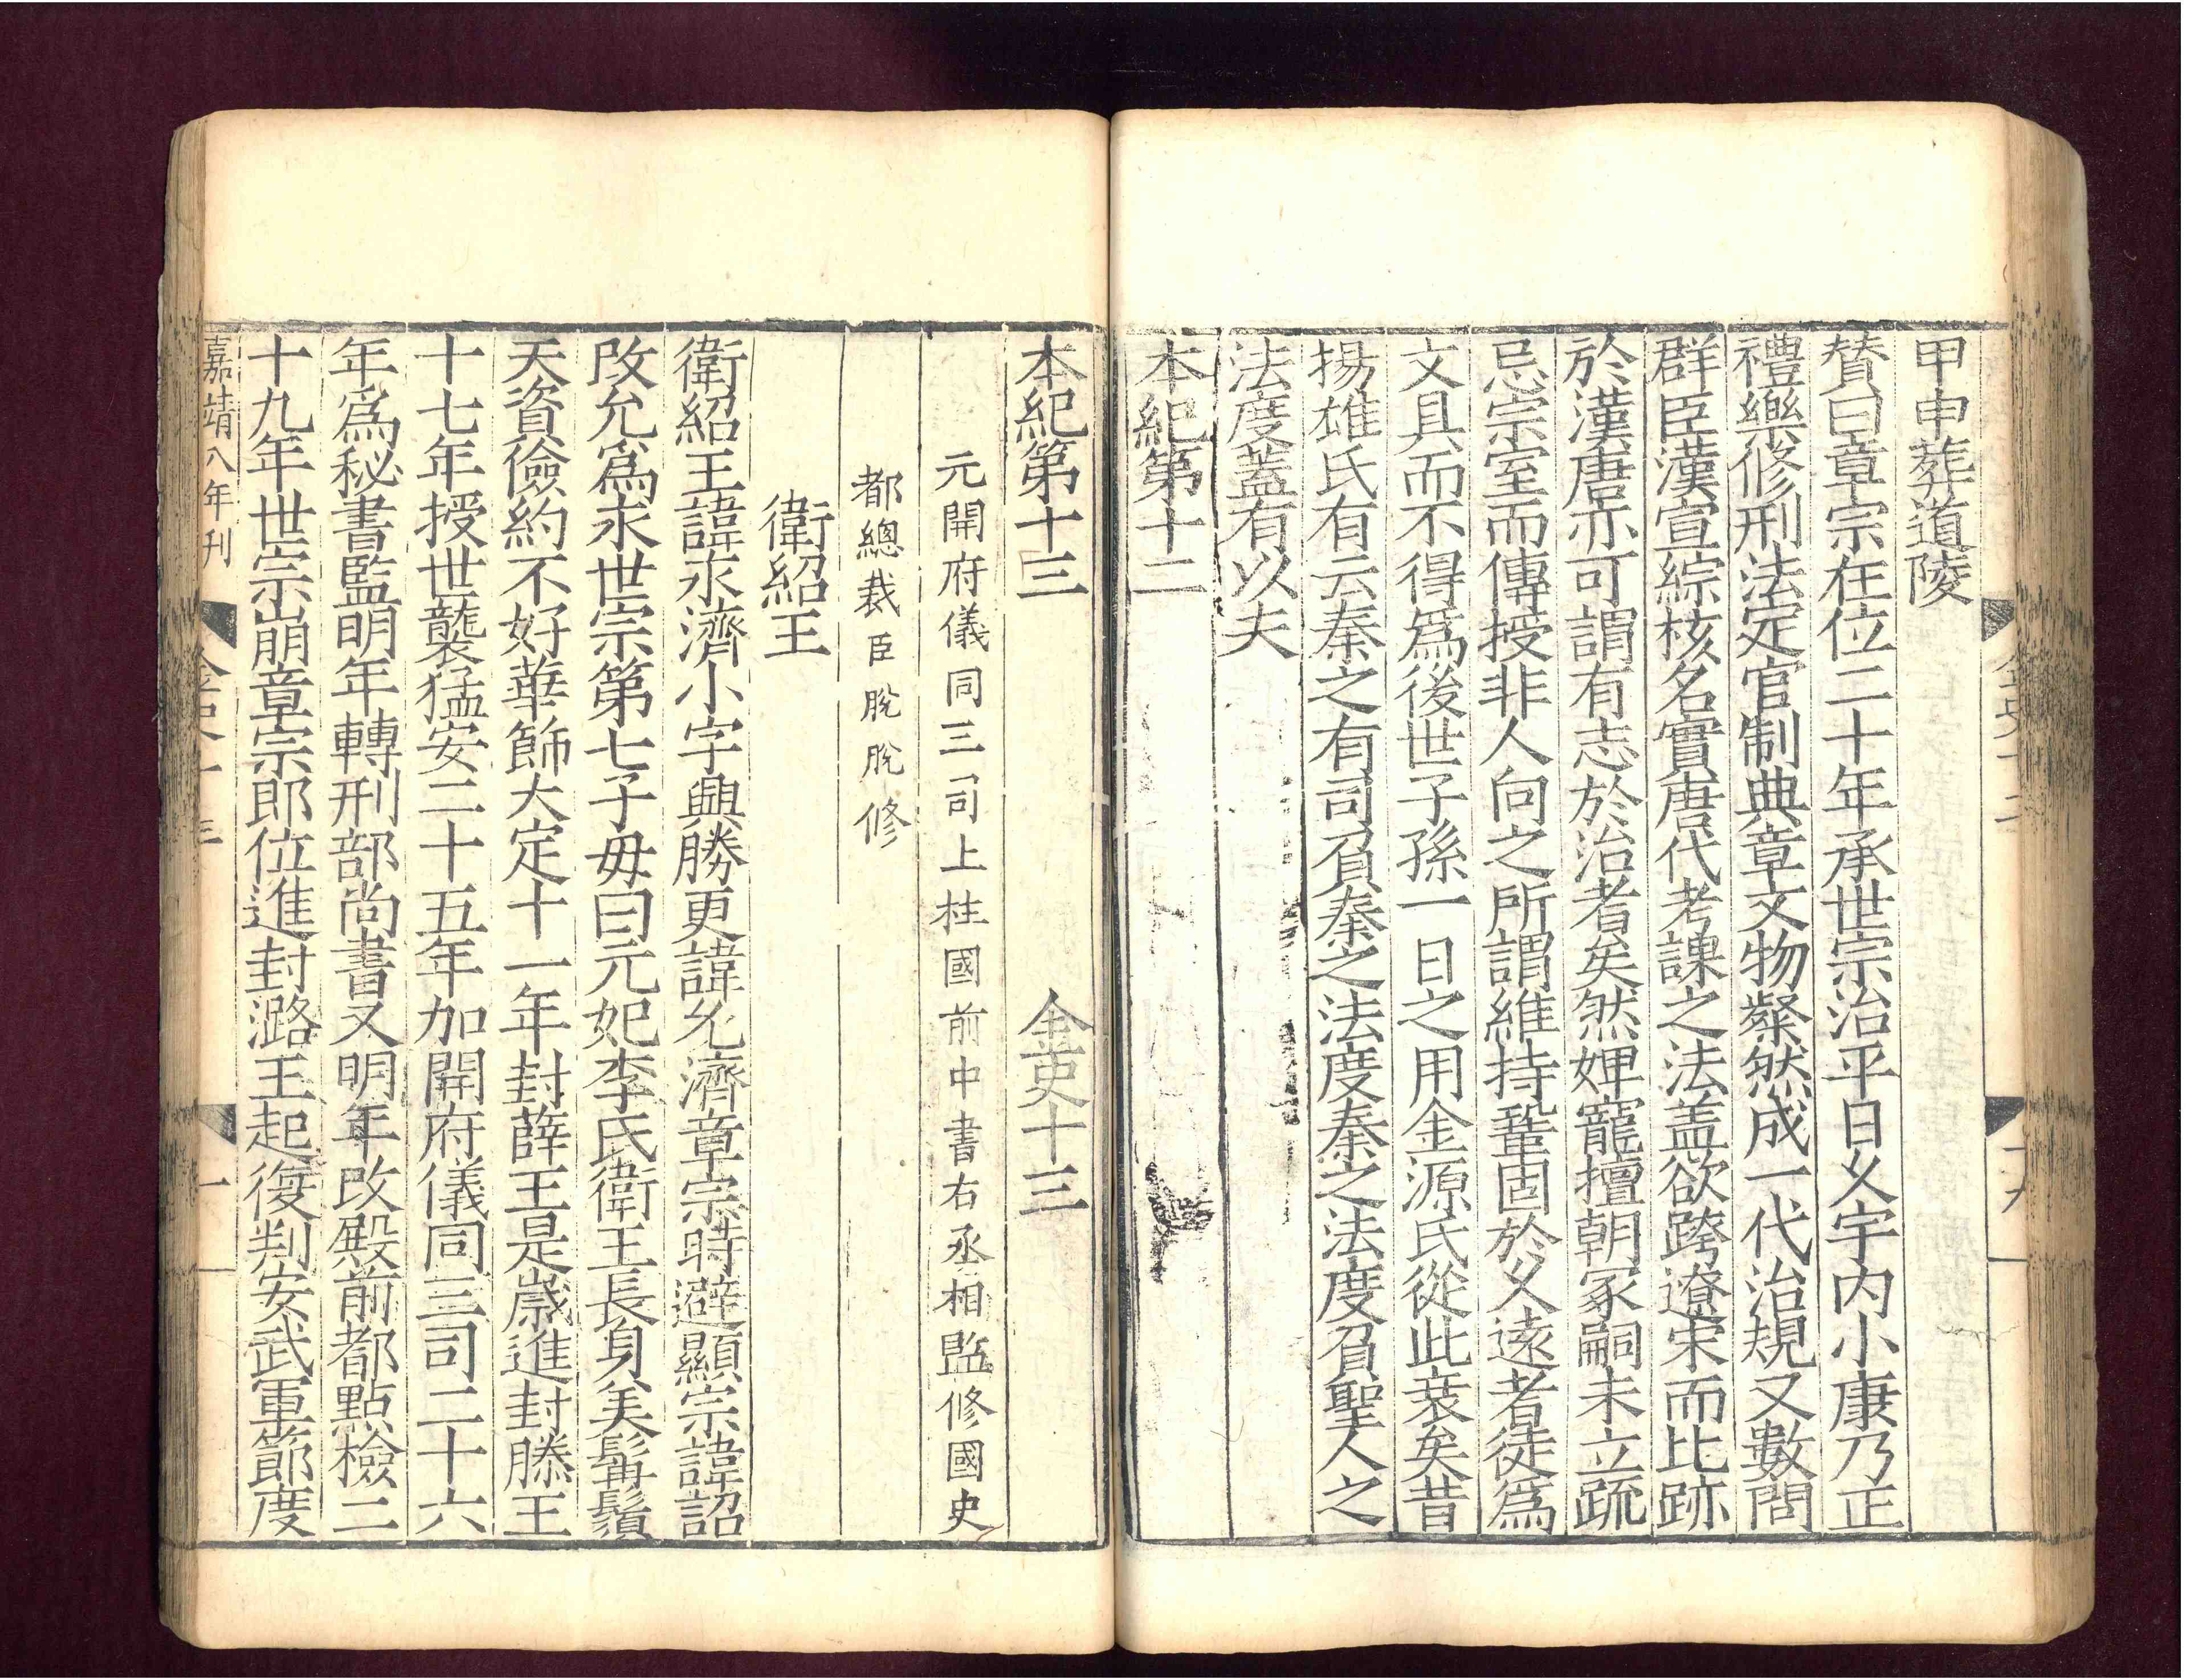 甲申葬道陵
賛曰章宗在位二十年承世宗治平日乆宇内小康乃正
禮樂修刑法定官制典章文物粲然成一代治規又數問
群臣漢宣綜核名實唐代考課之法盖欲跨遼宋而比跡
於漢唐亦可謂有志於治者矣然婢寵擅朝冢嗣未立疏
忌宗室而傳授非人向之所謂維持鞏固於乆遠者徒爲
文具而不得爲後世子孫一日之用金源氏從此衰矣昔
揚雄氏有云秦之有司負秦之法度秦之法度負聖人之
法度蓋有以夫
本紀第十二
金史十二
十九
本紀第十三 金史十三
元開府儀同三司上柱國前中書右丞相監修國史
都總裁臣脫脫修
衛紹王
衛紹王諱永濟小字興勝更諱允濟章宗時避顯宗諱詔
改允爲永世宗第七子母曰元妃李氏衛王長身美髯鬚
天資儉約不好華飾大定十一年封薛王是歲進封滕王
十七年授世襲猛安二十五年加開府儀同三司二十六
年爲秘書監明年轉刑部尚書又明年改殿前都點檢二
十九年世宗崩章宗即位進封潞王起復判安武軍節度
嘉靖八年刊
金史十三
一